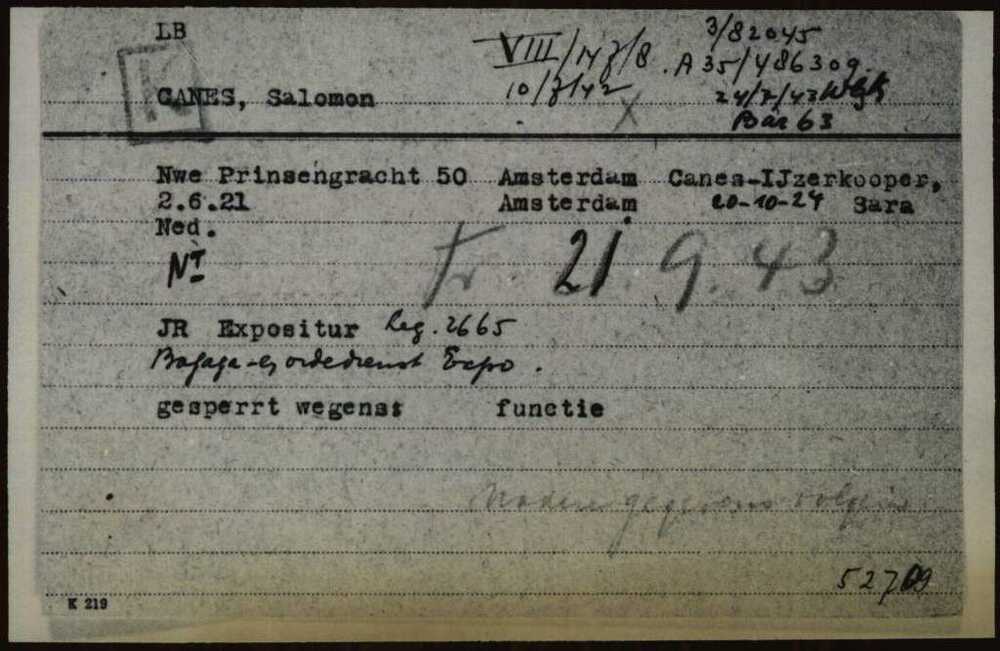 LB
3/82045
VIII/
A 35/486309
K
CANES, Salomon
10/7/42
X
24/7/43
Bar 63
Nwe Prinsengracht 50 Amsterdam Canes-IJzerkooper,
2.6.21 Amsterdam 20-10-24 Sara
Ned.
NT
Tr. 21.9.43
JR Expositur Reg. 2665
Bagage- ordedienst Expo.
gesperrt wegens: functie
Nadere gegevens volgen
52709
K 219